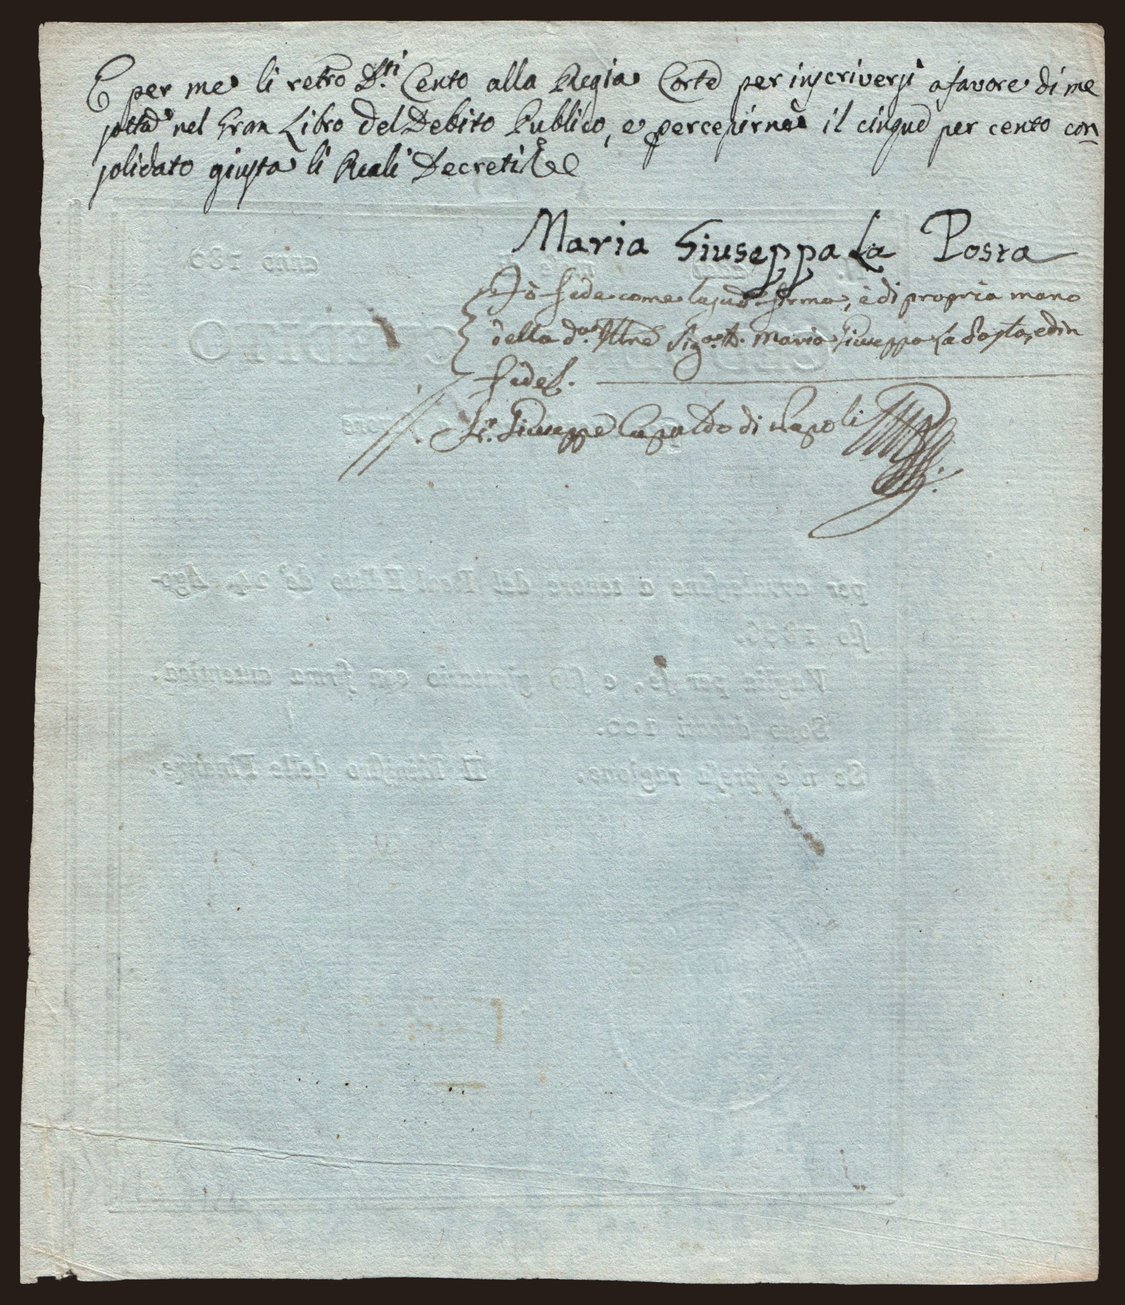 E per me li retro D.ti Cento alla Regia Corte per inscriversi a favore di me
sotta nel Gran Libro del Debito Publico, e percepirne il cinque per cento con-
solidato giusta li Reali Decreti
Maria Giuseppa La Posta
Io fede come la sud.a firma, è di propria mano
della d.a Ill.re Sig.a D. Maria Giuseppa La Posta, ed in
fede
N.r Giuseppe Capaldo di Napoli
anno 180
CREDITO
per ammortizarsi a tenore del Real Editto de' 24. Ago-
sto 1806.
Vaglia per se, e suo giratario con firma autentica.
Sono ducati 100.
Se n'è presa ragione. Il Ministro delle Finanze.